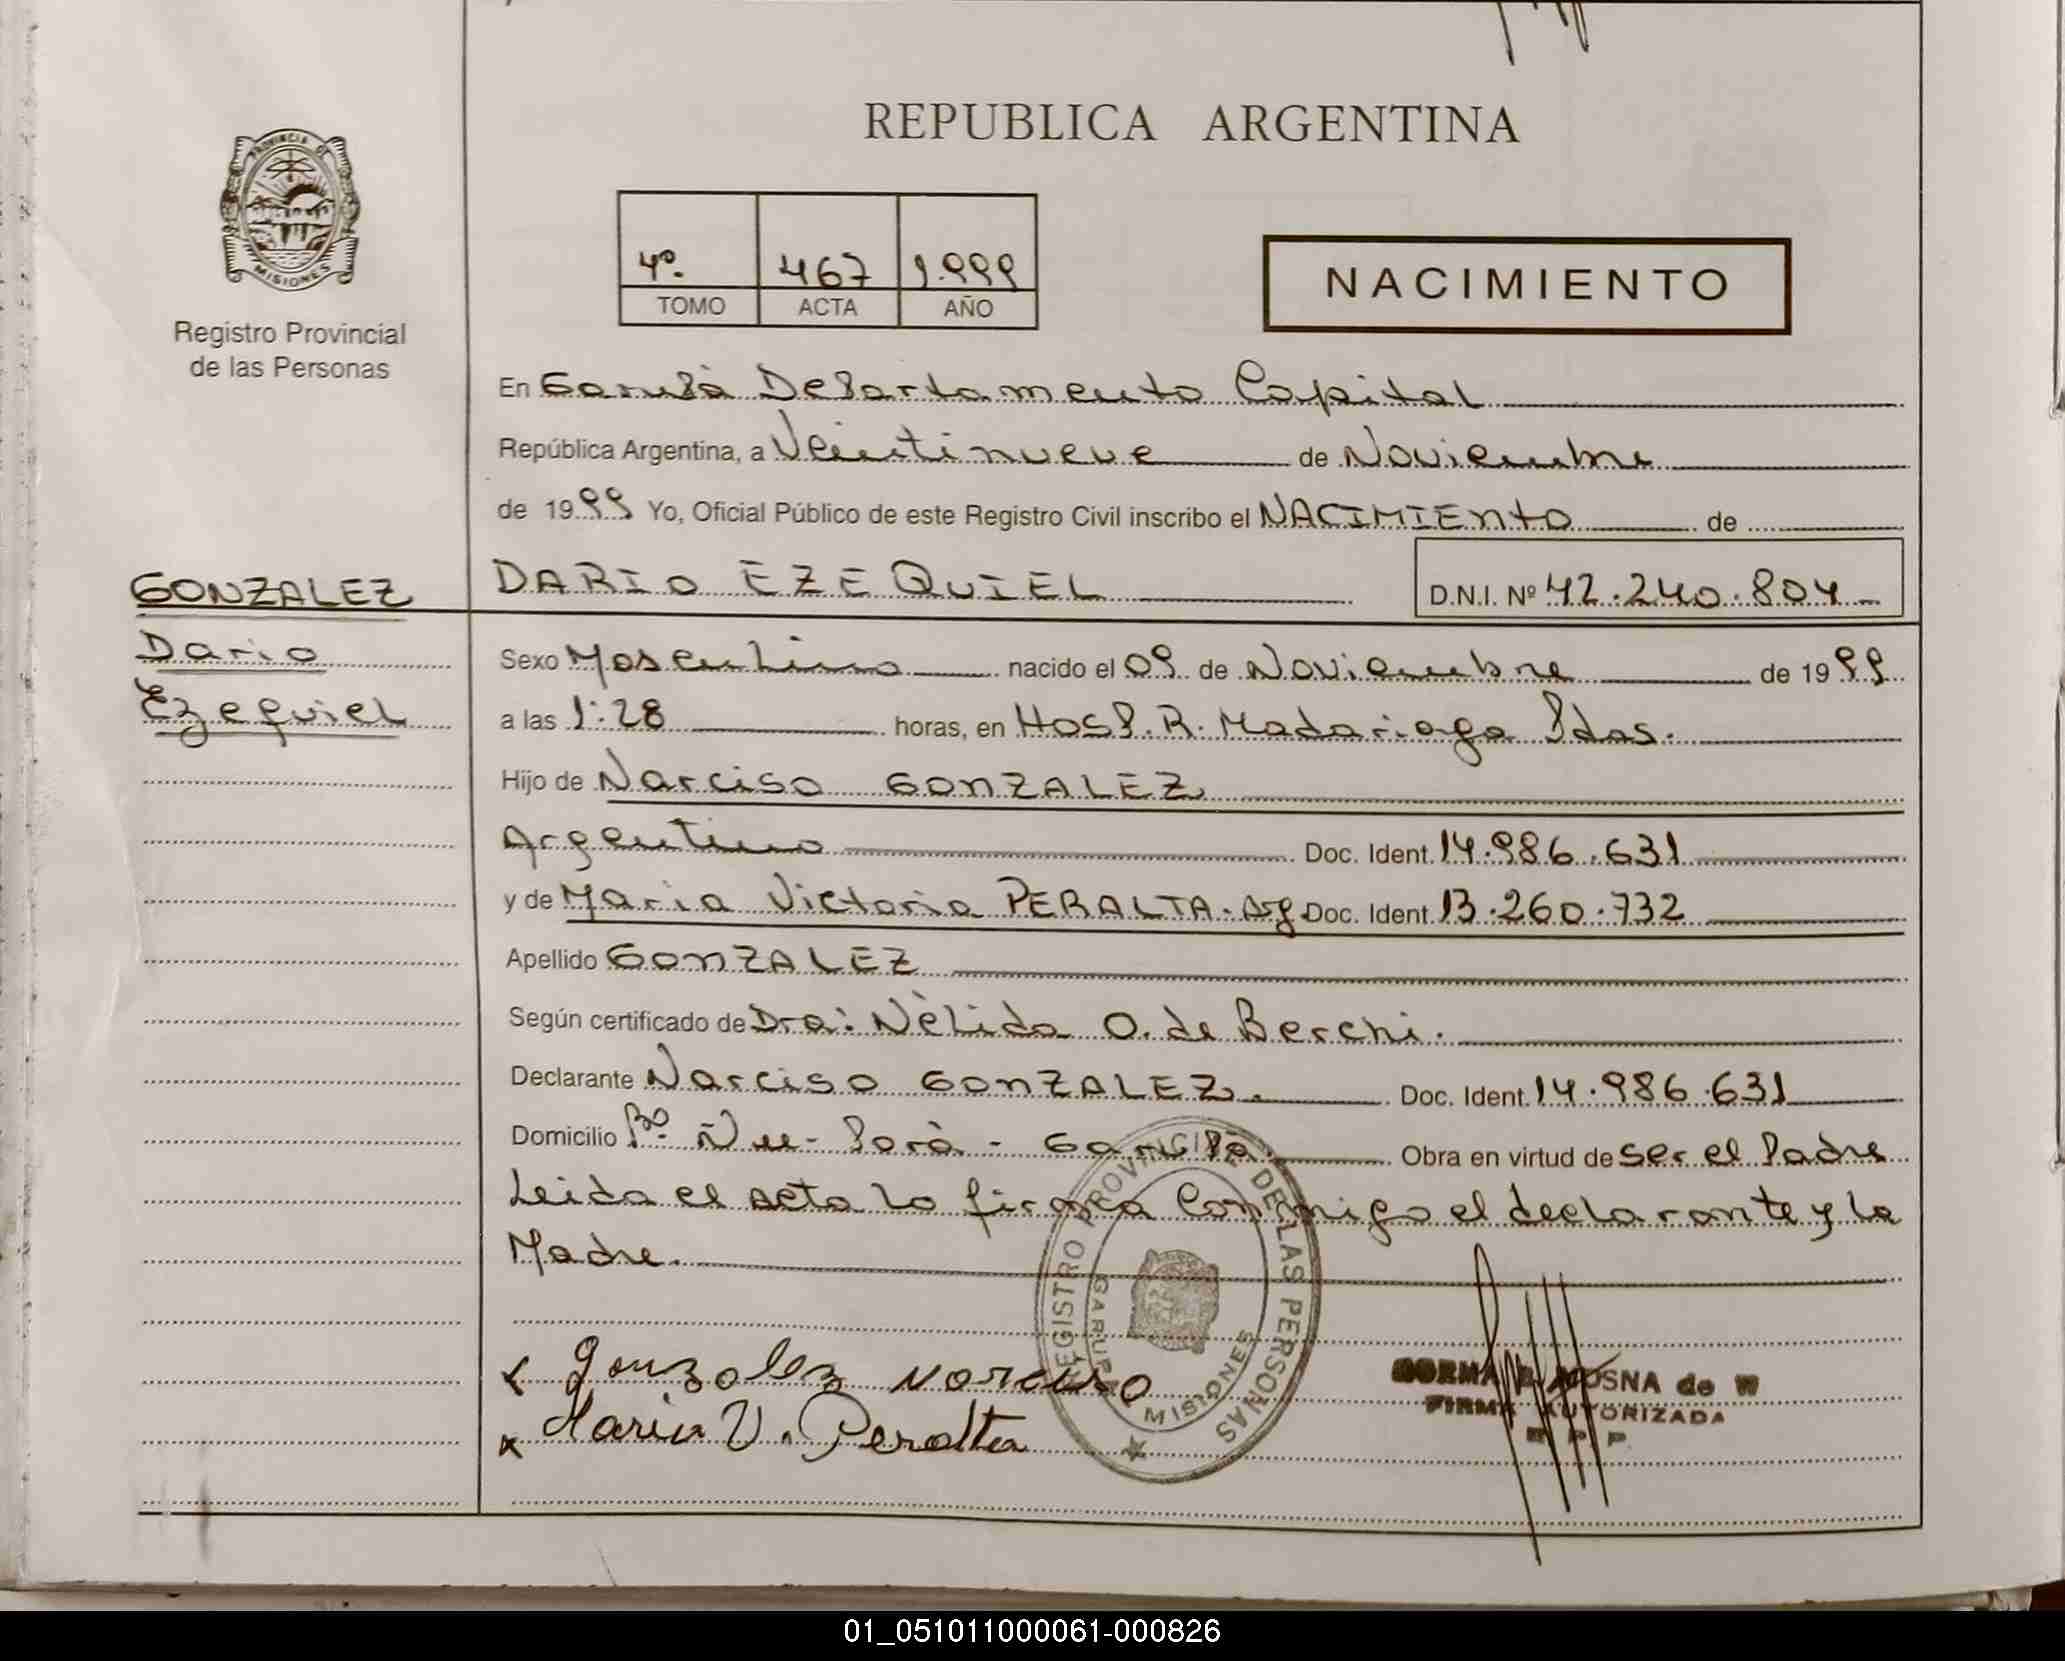 REPUBLICA ARGENTINA
PROVINCIA DE
MISIONES
Registro Provincial
de las Personas
4º. 467 1.999
TOMO ACTA AÑO
NACIMIENTO
En Garupà Departamento Capital
República Argentina, a Veintinueve de Noviembre
de 1999 Yo, Oficial Público de este Registro Civil inscribo el NACIMIENTO de
GONZALEZ
Dario
Ezequiel
DARIO EZEQUIEL D.N.I. Nº 42.240.804
Sexo Masculino nacido el 09 de Noviembre de 1999
a las 1:28 horas, en Hosp. R. Madariaga Pdas.
Hijo de Narciso GONZALEZ
Argentino Doc. Ident. 14.986.631
y de Maria Victoria PERALTA. Arg Doc. Ident. 13.260.732
Apellido GONZALEZ
Según certificado de Dra: Nèlida O. de Berchi.
Declarante Narciso GONZALEZ. Doc. Ident. 14.986.631
Domicilio Bº. Ñu- Porà - Garupà Obra en virtud de ser el Padre
Leida el acta la firma Conmigo el declarante y la
Madre.
REGISTRO PROVINCIAL DE LAS PERSONAS
GARUPA MISIONES
x Gonzalez Narciso
x Maria V. Peralta
NORMA de W
FIRMA AUTORIZADA
01_051011000061-000826